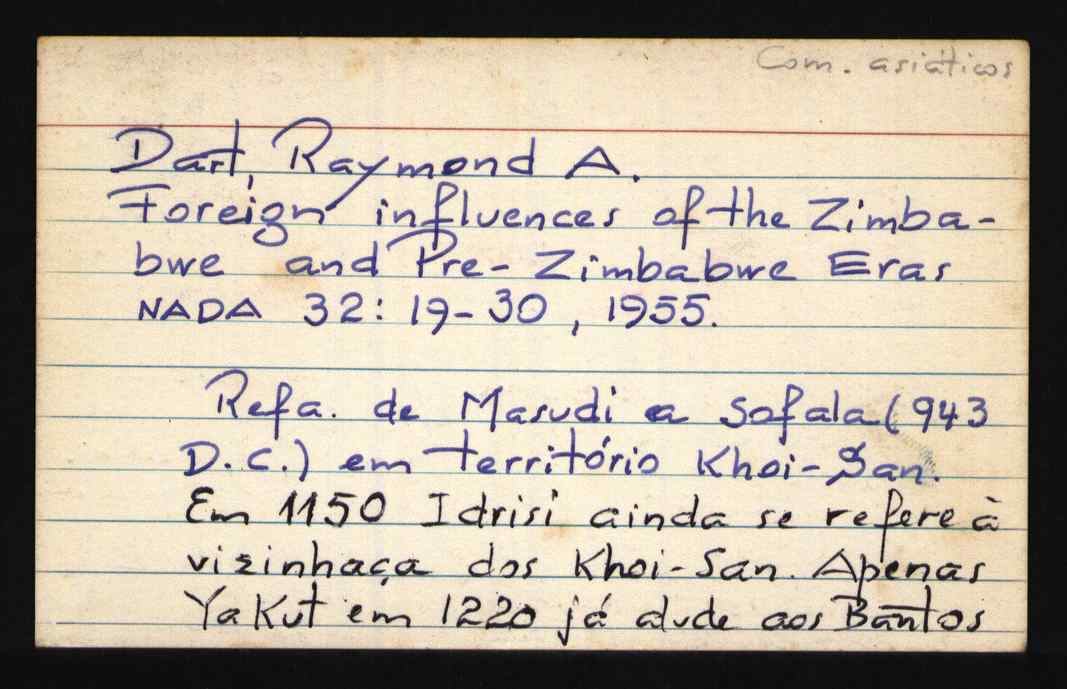 Com. asiáticos
Dart, Raymond A.
Foreign influences of the Zimba-
bwe and Pre-Zimbabwe Eras
NADA 32: 19-30, 1955.
Refa. de Masudi a Sofala (943
D.C.) em território Khoi-San.
Em 1150 Idrisi ainda se refere à
vizinhaça dos Khoi-San. Apenas
Yakut em 1220 já alude aos Bantos